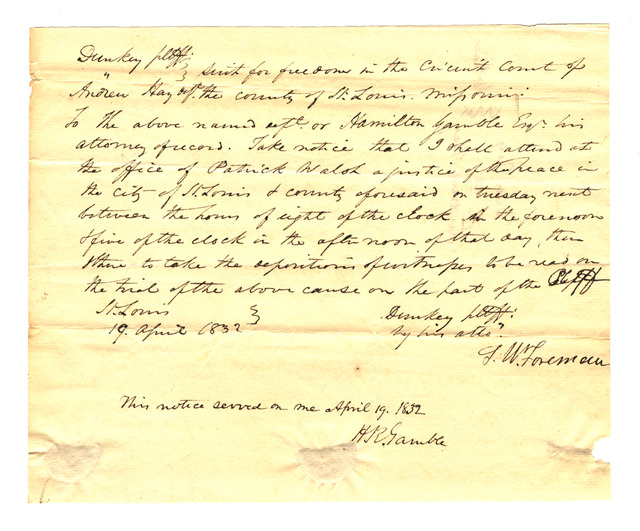 Dunkey pltff.
vs } suit for freedom in the Circuit Court of
Andrew Hay deft. the county of St. Louis. Missouri:
To the above named deft. or Hamilton Gamble Esqr. his
attorney of record. Take notice that I shall attend at
the office of Patrick Walsh a justice of the peace in
the city of St. Louis & county aforesaid on tuesday next
between the hours of eight of the clock in the forenoon
& five of the clock in the afternoon of that day, then
& there to take the depositions of witnesses to be read on
the trial of the above cause on the part of the Pltff
St. Louis }
19. April 1832
Dunkey pltff:
by his atto.
S. W. Foreman
This notice served on me April 19. 1832
H R Gamble